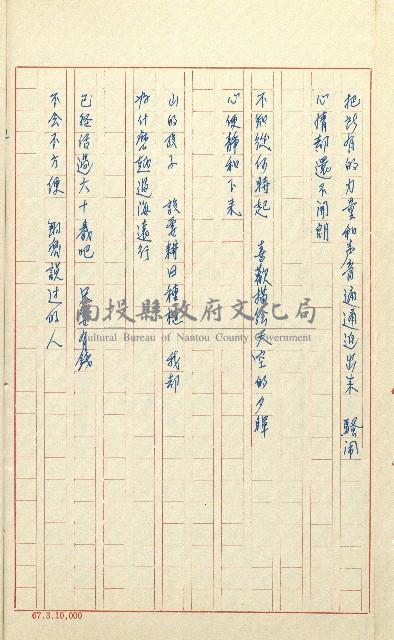 把所有的力量和声音通通迫出来　騷鬧
心情却還不開朗
不知從何時起　喜歡描绘天空的夕暉
心便靜和下来
山的孩子　該要耕田種地　我却
為什麼越過海遠行
已经活過六十歲吧　只要有錢
不会不方便　劉罗誤过的人
南投縣政府文化局
Cultural Bureau of Nantou County Government
67.3.10,000